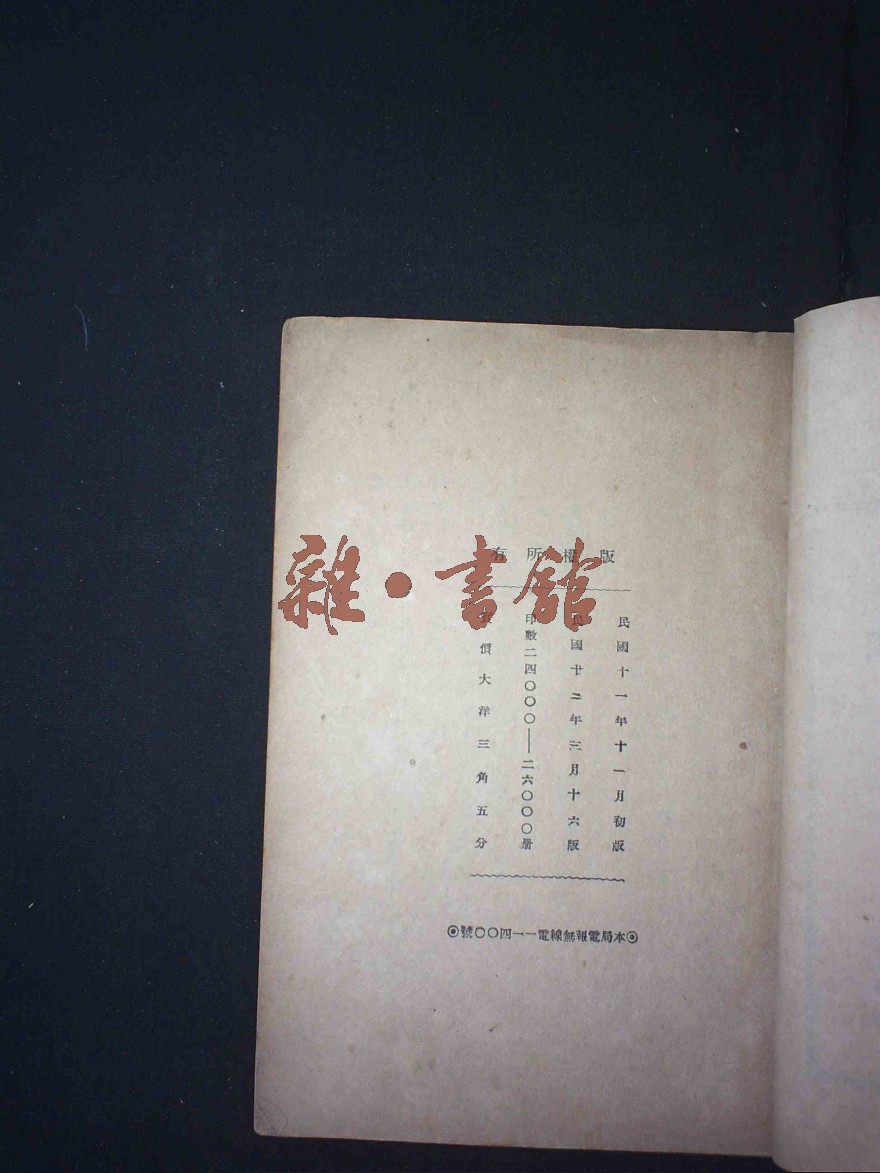 版權所有
民國十一年十一月初版
民國廿二年三月十六版
印數二四〇〇〇——二六〇〇〇册
價大洋三角五分
◎本局電報無線電一一四〇〇號◎
雜·書館